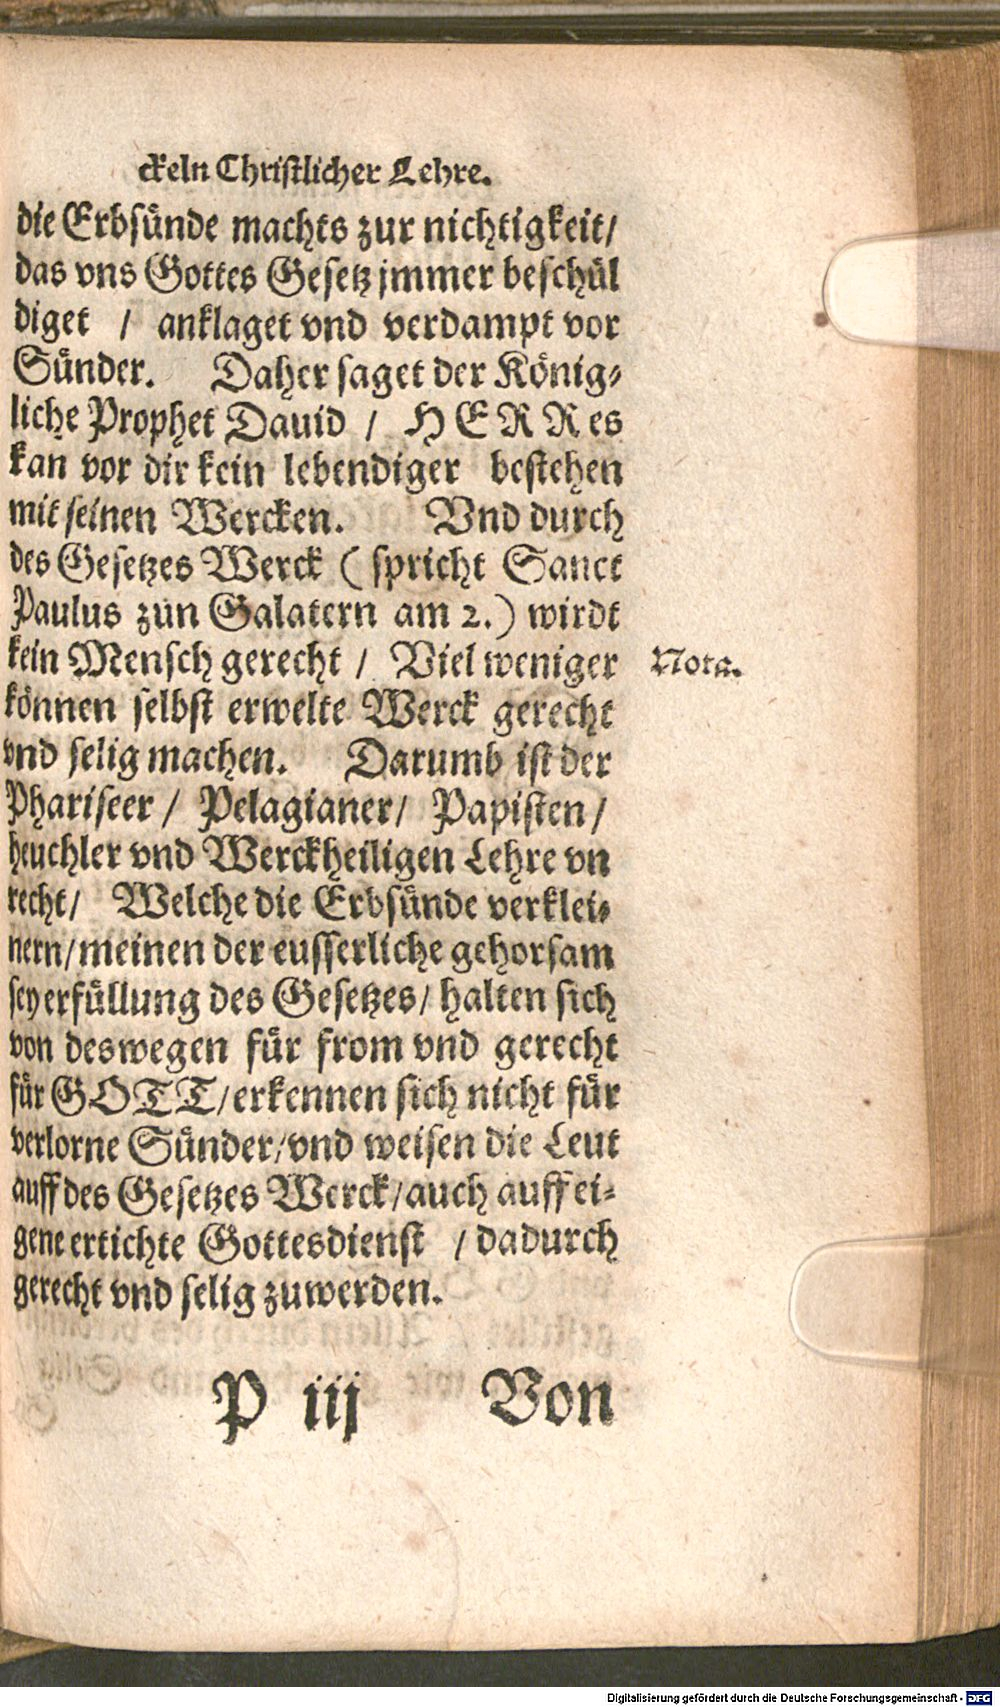 ckeln Christlicher Lehre.
die Erbsünde machts zur nichtigkeit/
das vns Gottes Gesetz jmmer beschül
diget / anklaget vnd verdampt vor
Sünder. Daher saget der König-
liche Prophet Dauid / HERR es
kan vor dir kein lebendiger bestehen
mit seinen Wercken. Vnd durch
des Gesetzes Werck ( spricht Sanct
Paulus zun Galatern am 2.) wirdt
kein Mensch gerecht / Viel weniger
Nota.
können selbst erwelte Werck gerecht
vnd selig machen. Darumb ist der
Phariseer / Pelagianer/ Papisten /
heuchler vnd Werckheiligen Lehre vn
recht/ Welche die Erbsünde verklei-
nern/meinen der eusserliche gehorsam
sey erfüllung des Gesetzes/ halten sich
von deswegen für from vnd gerecht
für GOTT/erkennen sich nicht für
verlorne Sünder/vnd weisen die Leut
auff des Gesetzes Werck/auch auff ei-
gene ertichte Gottesdienst / dadurch
gerecht vnd selig zuwerden.
P iij Von
Digitalisierung gefördert durch die Deutsche Forschungsgemeinschaft - DFG